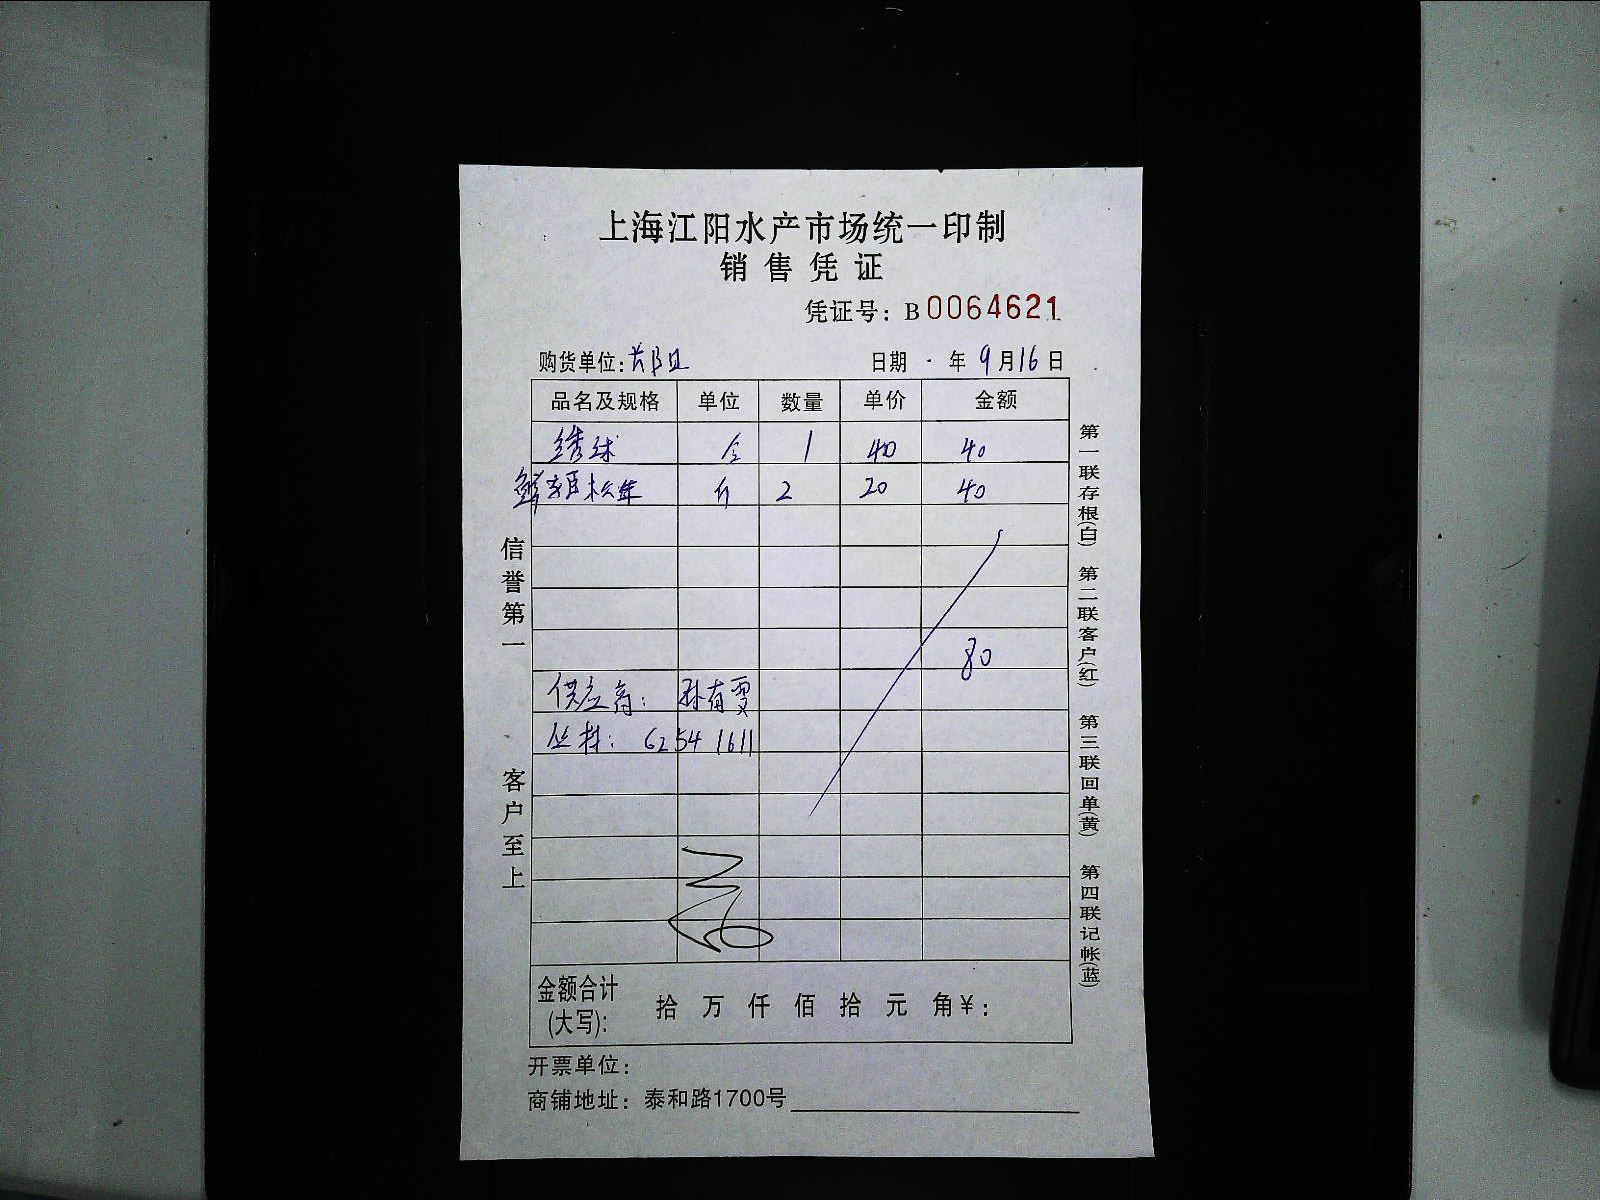 上海江阳水产市场统一印制
销售凭证
凭证号：B0064621
购货单位：
日期 年 9月16日
品名及规格 单位 数量 单价 金额
绣球 个 1 40 40
鲜 松茸 斤 2 20 40
80
供应商：孙有雯
丛林：62541611
金额合计(大写)： 拾 万 仟 佰 拾 元 角 ¥：
开票单位：
商铺地址：泰和路1700号
信誉第一 客户至上
第一联存根(白) 第二联客户(红) 第三联回单(黄) 第四联记帐(蓝)